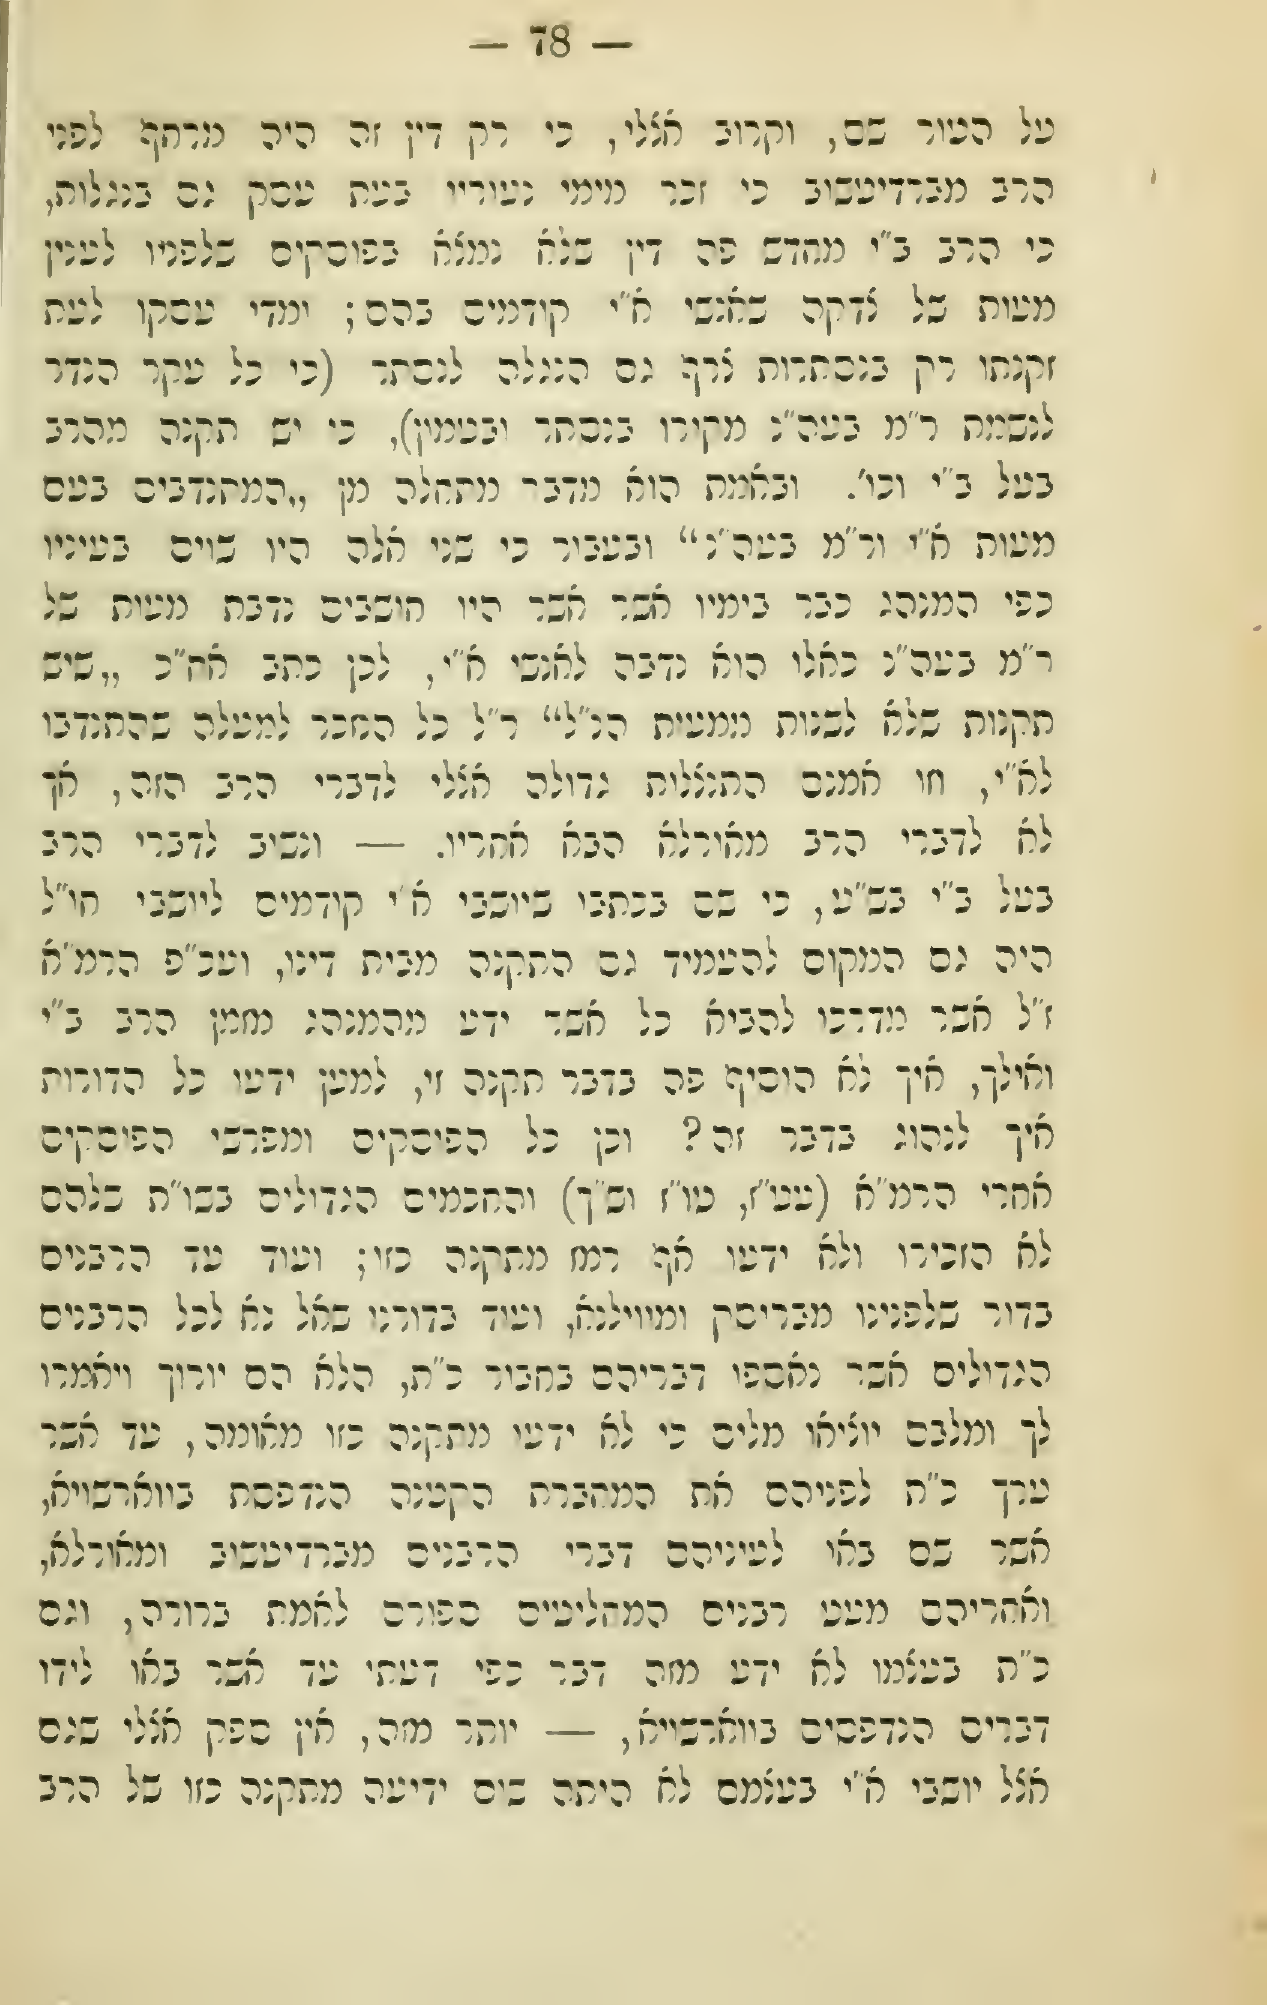 — 78 —
על הטור שם, וקרוב אצלי, כי רק דין זה היה מרחף לפני
הרב מברדיטשוב כי זכר מימי נעוריו בעת עסק גם בנגלות,
כי הרב ב"י מחדש פה דין שלא נמצא בפוסקים שלפניו לענין
מעות של צדקה שאנשי א"י קודמים בהם; ומדי עסקו לעת
זקנתו רק בנסתרות צרף גם הנגלה לנסתר (כי כל עקר הנדר
לנשמת ר"מ בעה"נ מקורו בנסתר ובטמון), כי יש תקנה מהרב
בעל ב"י וכו'. ובאמת הוא מדבר מתחלה מן „המתנדבים בעם
מעות א"י ור"מ בעה"נ“ ובעבור כי שני אלה היו שוים בעיניו
כפי המנהג כבר בימיו אשר אשר היו חושבים נדבת מעות של
ר"מ בעה"נ כאלו הוא נדבה לאנשי א"י, לכן כתב אח"כ „שיש
תקנות שלא לשנות ממעות הנ"ל“ ר"ל כל הנזכר למעלה שהתנדבו
לא"י, וזו אמנם התנצלות גדולה אצלי לדברי הרב הזה, אך
לא לדברי הרב מאורלא הבא אחריו. — ונשיב לדברי הרב
בעל ב"י בש"ע, כי שם בכתבו שיושבי א"י קודמים ליושבי חו"ל
היה גם המקום להעמיד גם התקנה מבית דינו, ועכ"פ הרמ"א
ז"ל אשר מדרכו להביא כל אשר ידע מהמנהג מזמן הרב ב"י
ואילך, איך לא הוסיף פה בדבר תקנה זו, למען ידעו כל הדורות
איך לנהוג בדבר זה? וכן כל הפוסקים ומפרשי הפוסקים
אחרי הרמ"א (עט"ז, טו"ז וש"ך) והחכמים הגדולים בשו"ת שלהם
לא הזכירו ולא ידעו אף רמז מתקנה כזו; ועוד עד הרבנים
בדור שלפנינו מבריסק ומווילנא, ועוד בדורנו שאל נא לכל הרבנים
הגדולים אשר נאספו דבריהם בחבור כ"ת, הלא הם יורוך ויאמרו
לך ומלבם יוציאו מלים כי לא ידעו מתקנה כזו מאומה, עד אשר
ערך כ"ת לפניהם את המחברת הקטנה הנדפסת בווארשויא,
אשר שם באו לעיניהם דברי הרבנים מברדיטשוב ומאורלא,
ואחריהם מעט רבנים המחליטים ספורם לאמת ברורה, וגם
כ"ת בעצמו לא ידע מזה דבר כפי דעתי עד אשר באו לידו
דברים הנדפסים בווארשויא, — יותר מזה, אין ספק אצלי שגם
אצל יושבי א"י בעצמם לא היתה שום ידיעה מתקנה כזו של הרב